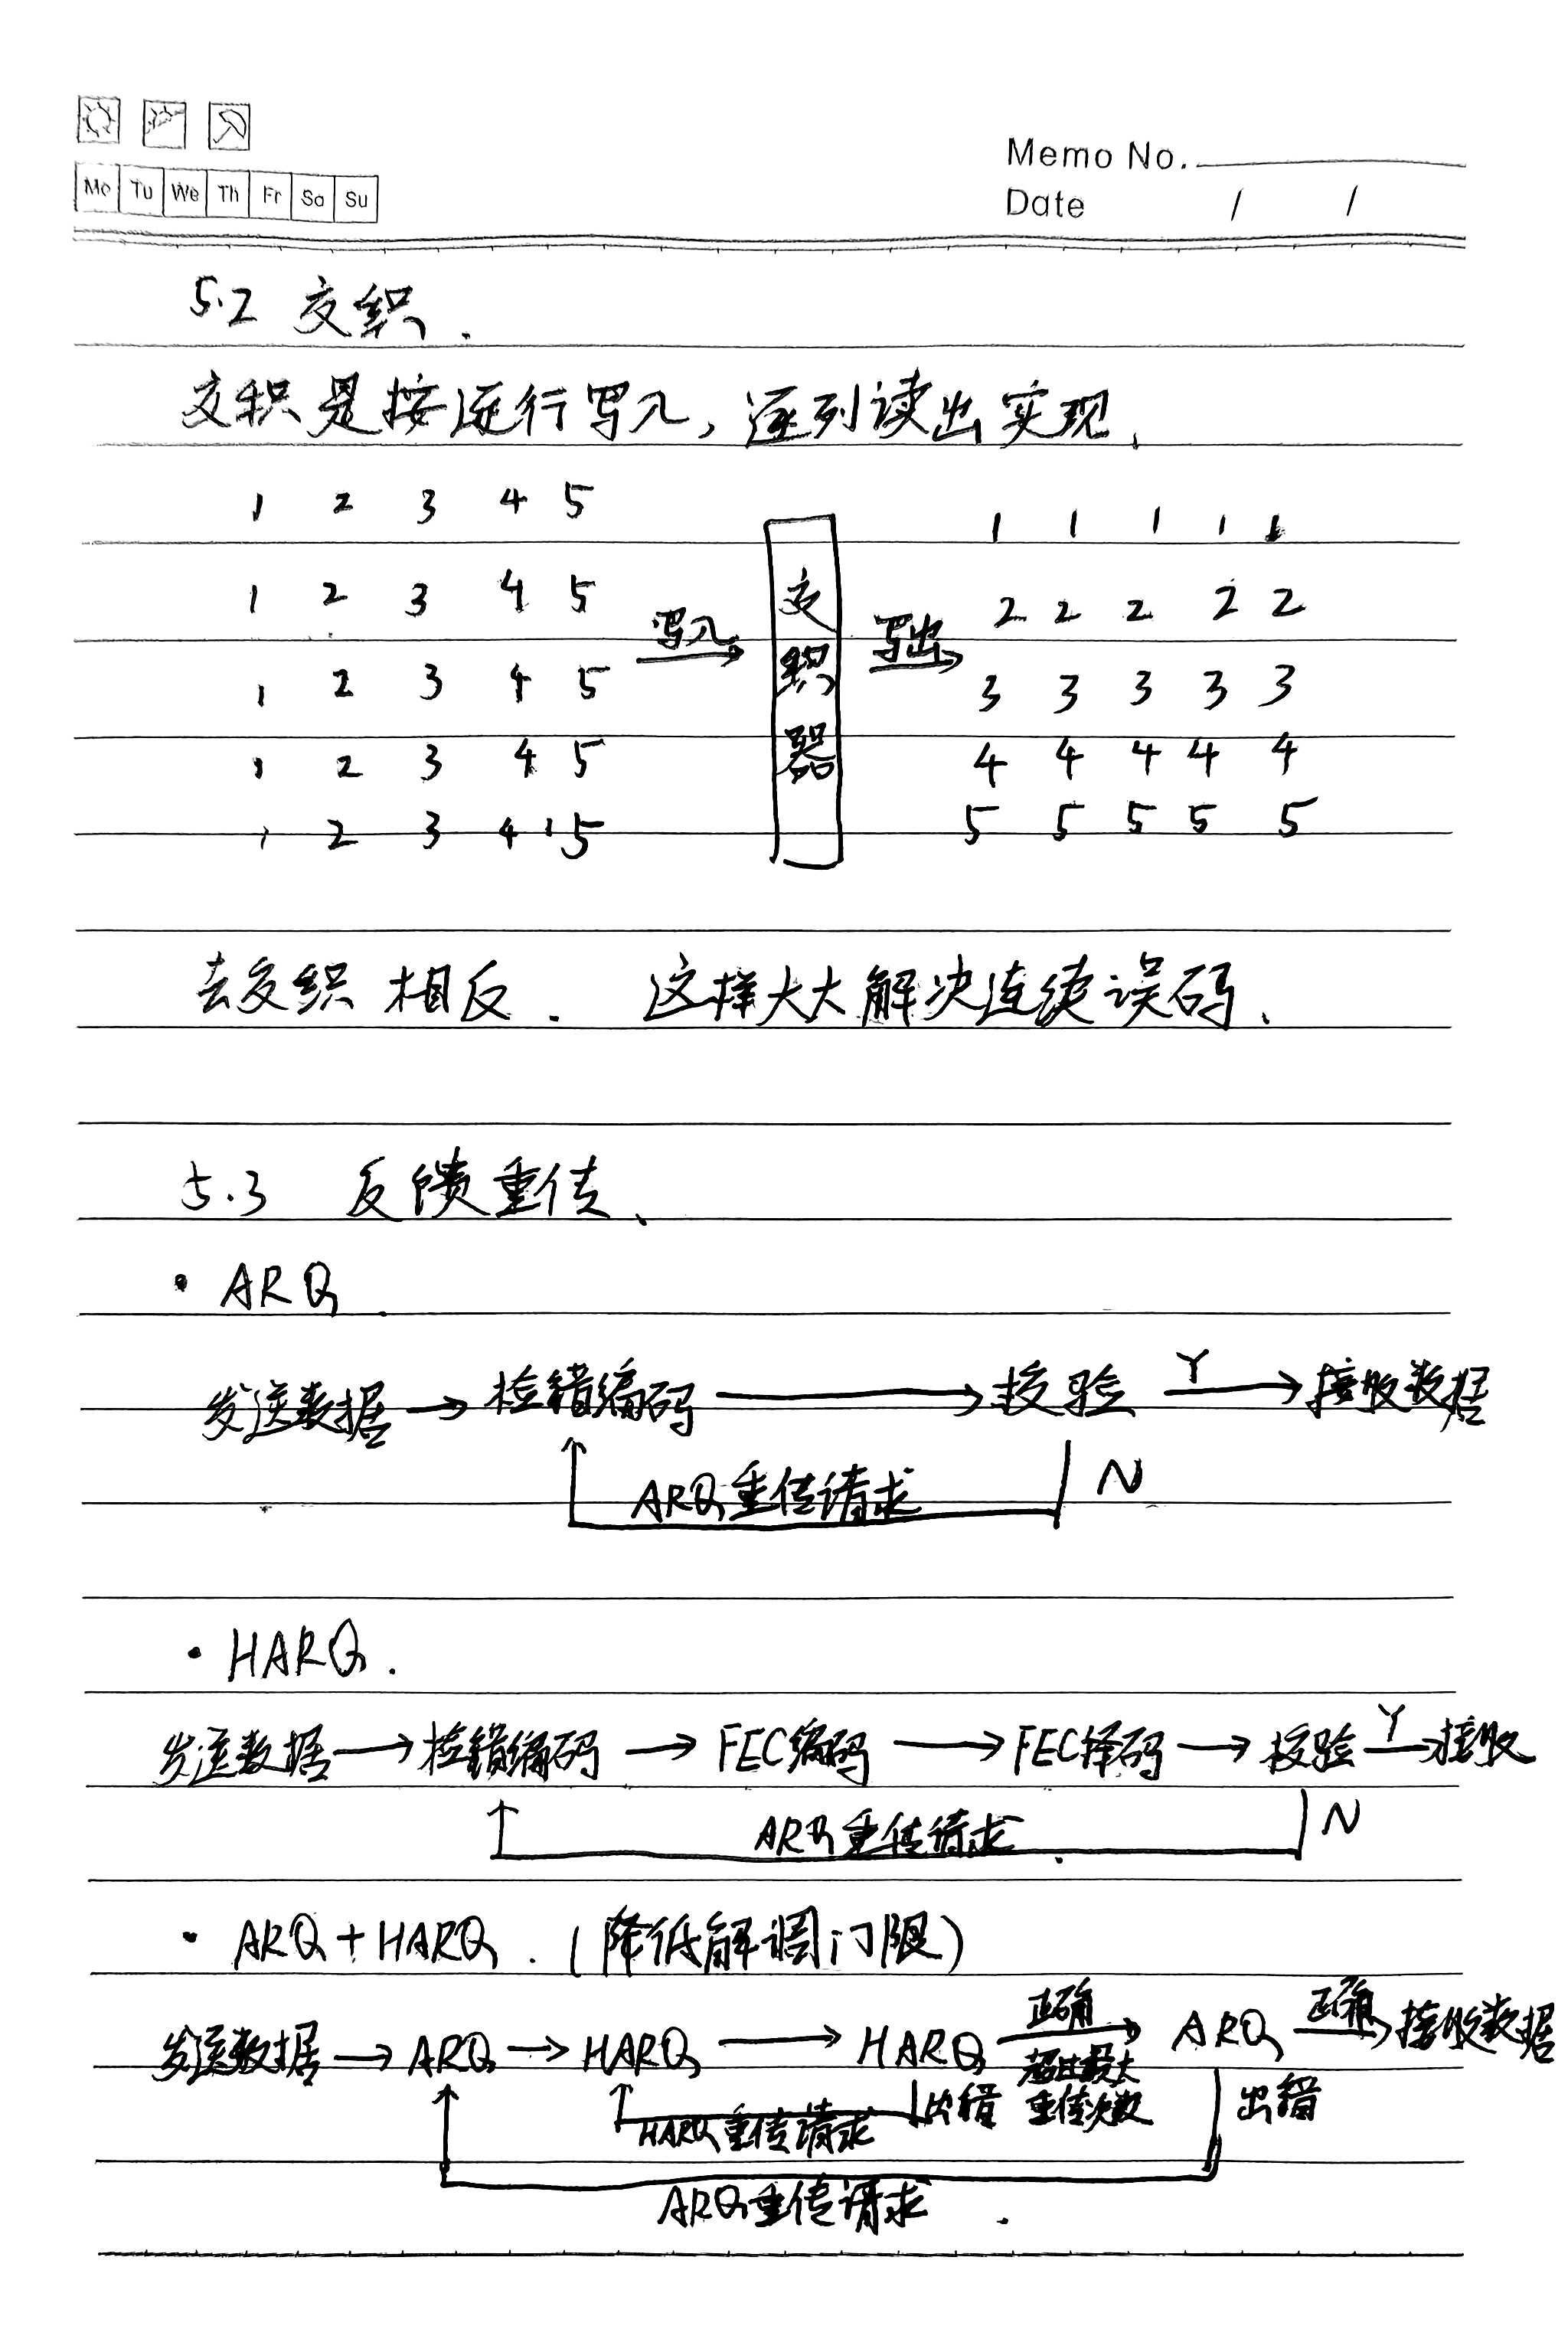 Memo No.
Mo Tu We Th Fr Sa Su
Date / /
5.2 交织.
交织是按逐行写入, 逐列读出实现.
1 2 3 4 5
1 2 3 4 5
1 2 3 4 5
1 2 3 4 5
1 2 3 4 5
写入
交织器
写出
1 1 1 1 1
2 2 2 2 2
3 3 3 3 3
4 4 4 4 4
5 5 5 5 5
去交织 相反. 这样大大解决连续误码.
5.3 反馈重传.
· ARQ
发送数据 → 检错编码 → 校验 Y → 接收数据
ARQ重传请求 N
· HARQ.
发送数据 → 检错编码 → FEC编码 → FEC译码 → 校验 Y → 接收
ARQ重传请求 N
· ARQ + HARQ. (降低解调门限)
发送数据 → ARQ → HARQ → HARQ 正确 → ARQ 正确 → 接收数据
HARQ重传请求 出错 最大重传次数 出错
ARQ重传请求.